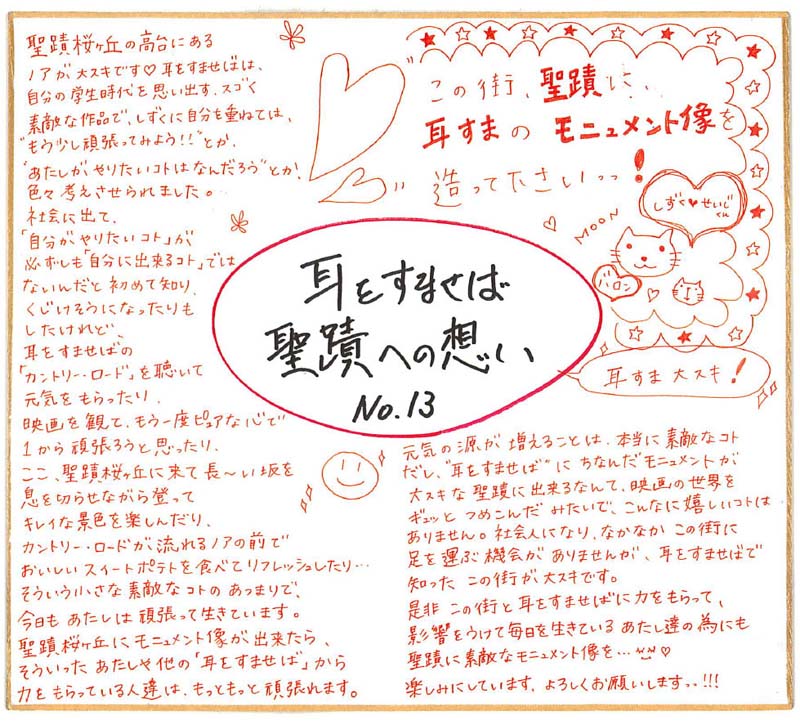 聖蹟桜ヶ丘の高台にある
ノアが大スキです♡耳をすませばは、
自分の学生時代を思い出す、スゴく
素敵な作品で、しずくに自分を重ねては、
"もう少し頑張ってみよう!!"とか、
"あたしがやりたいコトはなんだろう"とか、
色々考えさせられました。
社会に出て、
「自分がやりたいコト」が
必ずしも「自分に出来るコト」では
ないんだと初めて知り、
くじけそうになったりも
したけれど、
耳をすませばの
「カントリー・ロード」を聴いて
元気をもらったり、
映画を観て、もう一度ピュアな心で
1から頑張ろうと思ったり、
ここ、聖蹟桜ヶ丘に来て長〜い坂を
息を切らせながら登って
キレイな景色を楽しんだり、
カントリー・ロードが流れるノアの前で
おいしいスイートポテトを食べてリフレッシュしたり…
そういう小さな素敵なコトのあつまりで、
今日もあたしは頑張って生きています。
聖蹟桜ヶ丘にモニュメント像が出来たら、
そういったあたしや他の「耳をすませば」から
力をもらっている人達は、もっともっと頑張れます。
この街、聖蹟に、
耳すまの モニュメント像を
造って下さいっっ!
しずく♥せいじくん
MOON
バロン
耳すま大スキ!
耳をすませば
聖蹟への想い
No.13
元気の源が増えることは、本当に素敵なコト
だし、"耳をすませば"にちなんだモニュメントが
大スキな聖蹟に出来るなんて、映画の世界を
ギュッとつめこんだみたいで、こんなに嬉しいコトは
ありません。社会人になり、なかなかこの街に
足を運ぶ機会がありませんが、耳をすませばで
知ったこの街が大スキです。
是非この街と耳をすませばに力をもらって、
影響をうけて毎日を生きているあたし達の為にも
聖蹟に素敵なモニュメント像を…♡
楽しみにしています、よろしくお願いします、、!!!